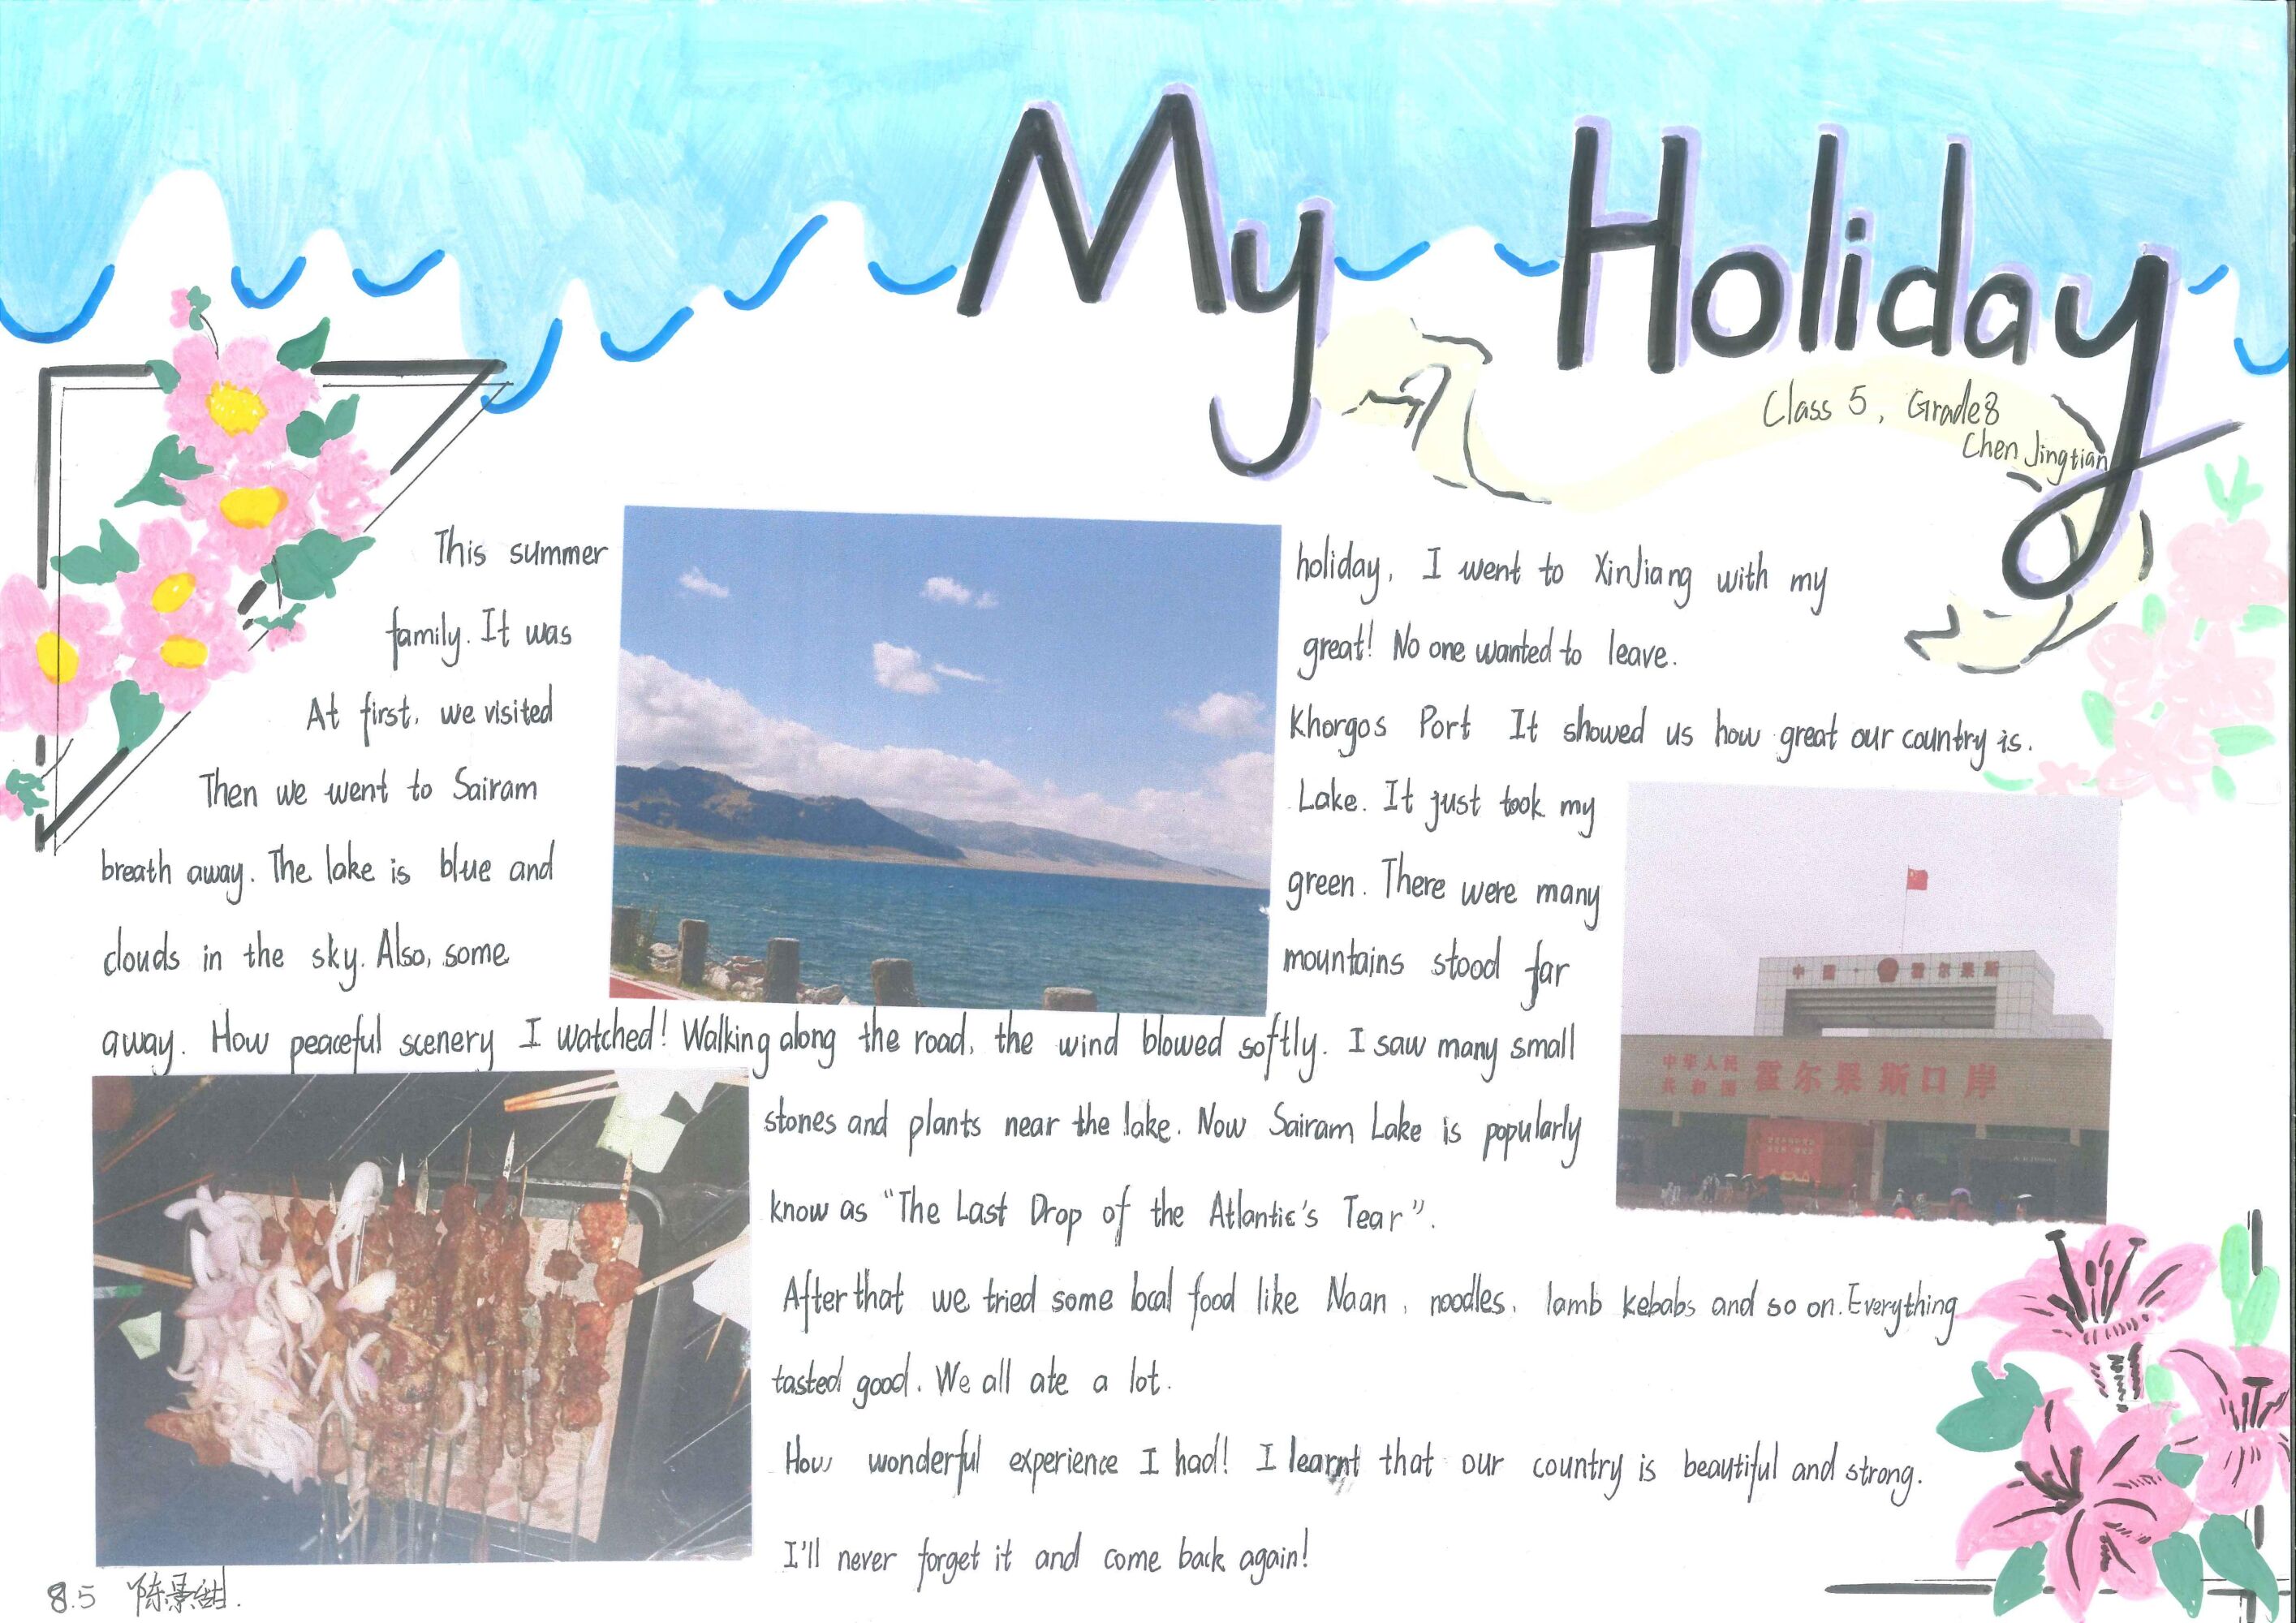 My Holiday
Class 5, Grade8
Chen Jingtian
This summer holiday, I went to XinJiang with my
family. It was great! No one wanted to leave.
At first, we visited Khorgos Port It showed us how great our country is.
Then we went to Sairam Lake. It just took my
breath away. The lake is blue and green. There were many
clouds in the sky. Also, some mountains stood far
away. How peaceful scenery I watched! Walking along the road, the wind blowed softly. I saw many small
stones and plants near the lake. Now Sairam Lake is popularly
know as "The Last Drop of the Atlantic's Tear".
After that we tried some local food like Naan, noodles, lamb kebabs and so on. Everything
tasted good. We all ate a lot.
How wonderful experience I had! I learnt that our country is beautiful and strong.
I'll never forget it and come back again!
中国·霍尔果斯
中华人民
共和国
霍尔果斯口岸
8.5 陈景甜.